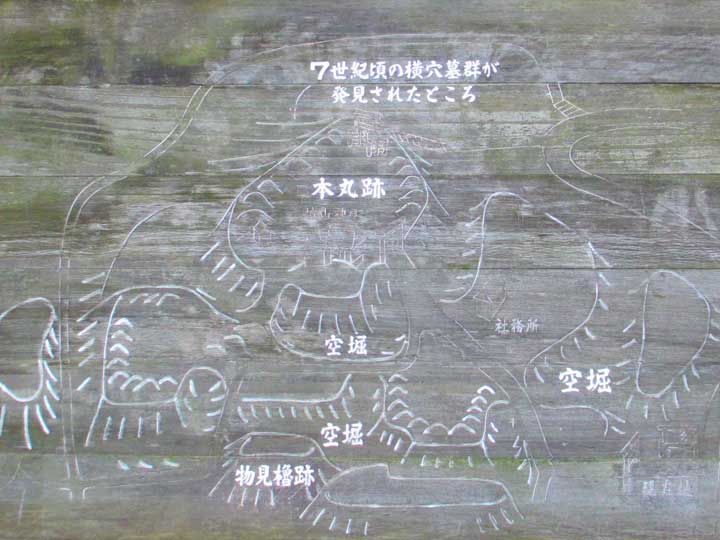 7世紀頃の横穴墓群が
発見されたところ
本丸跡
空堀
社務所
空堀
空堀
物見櫓跡